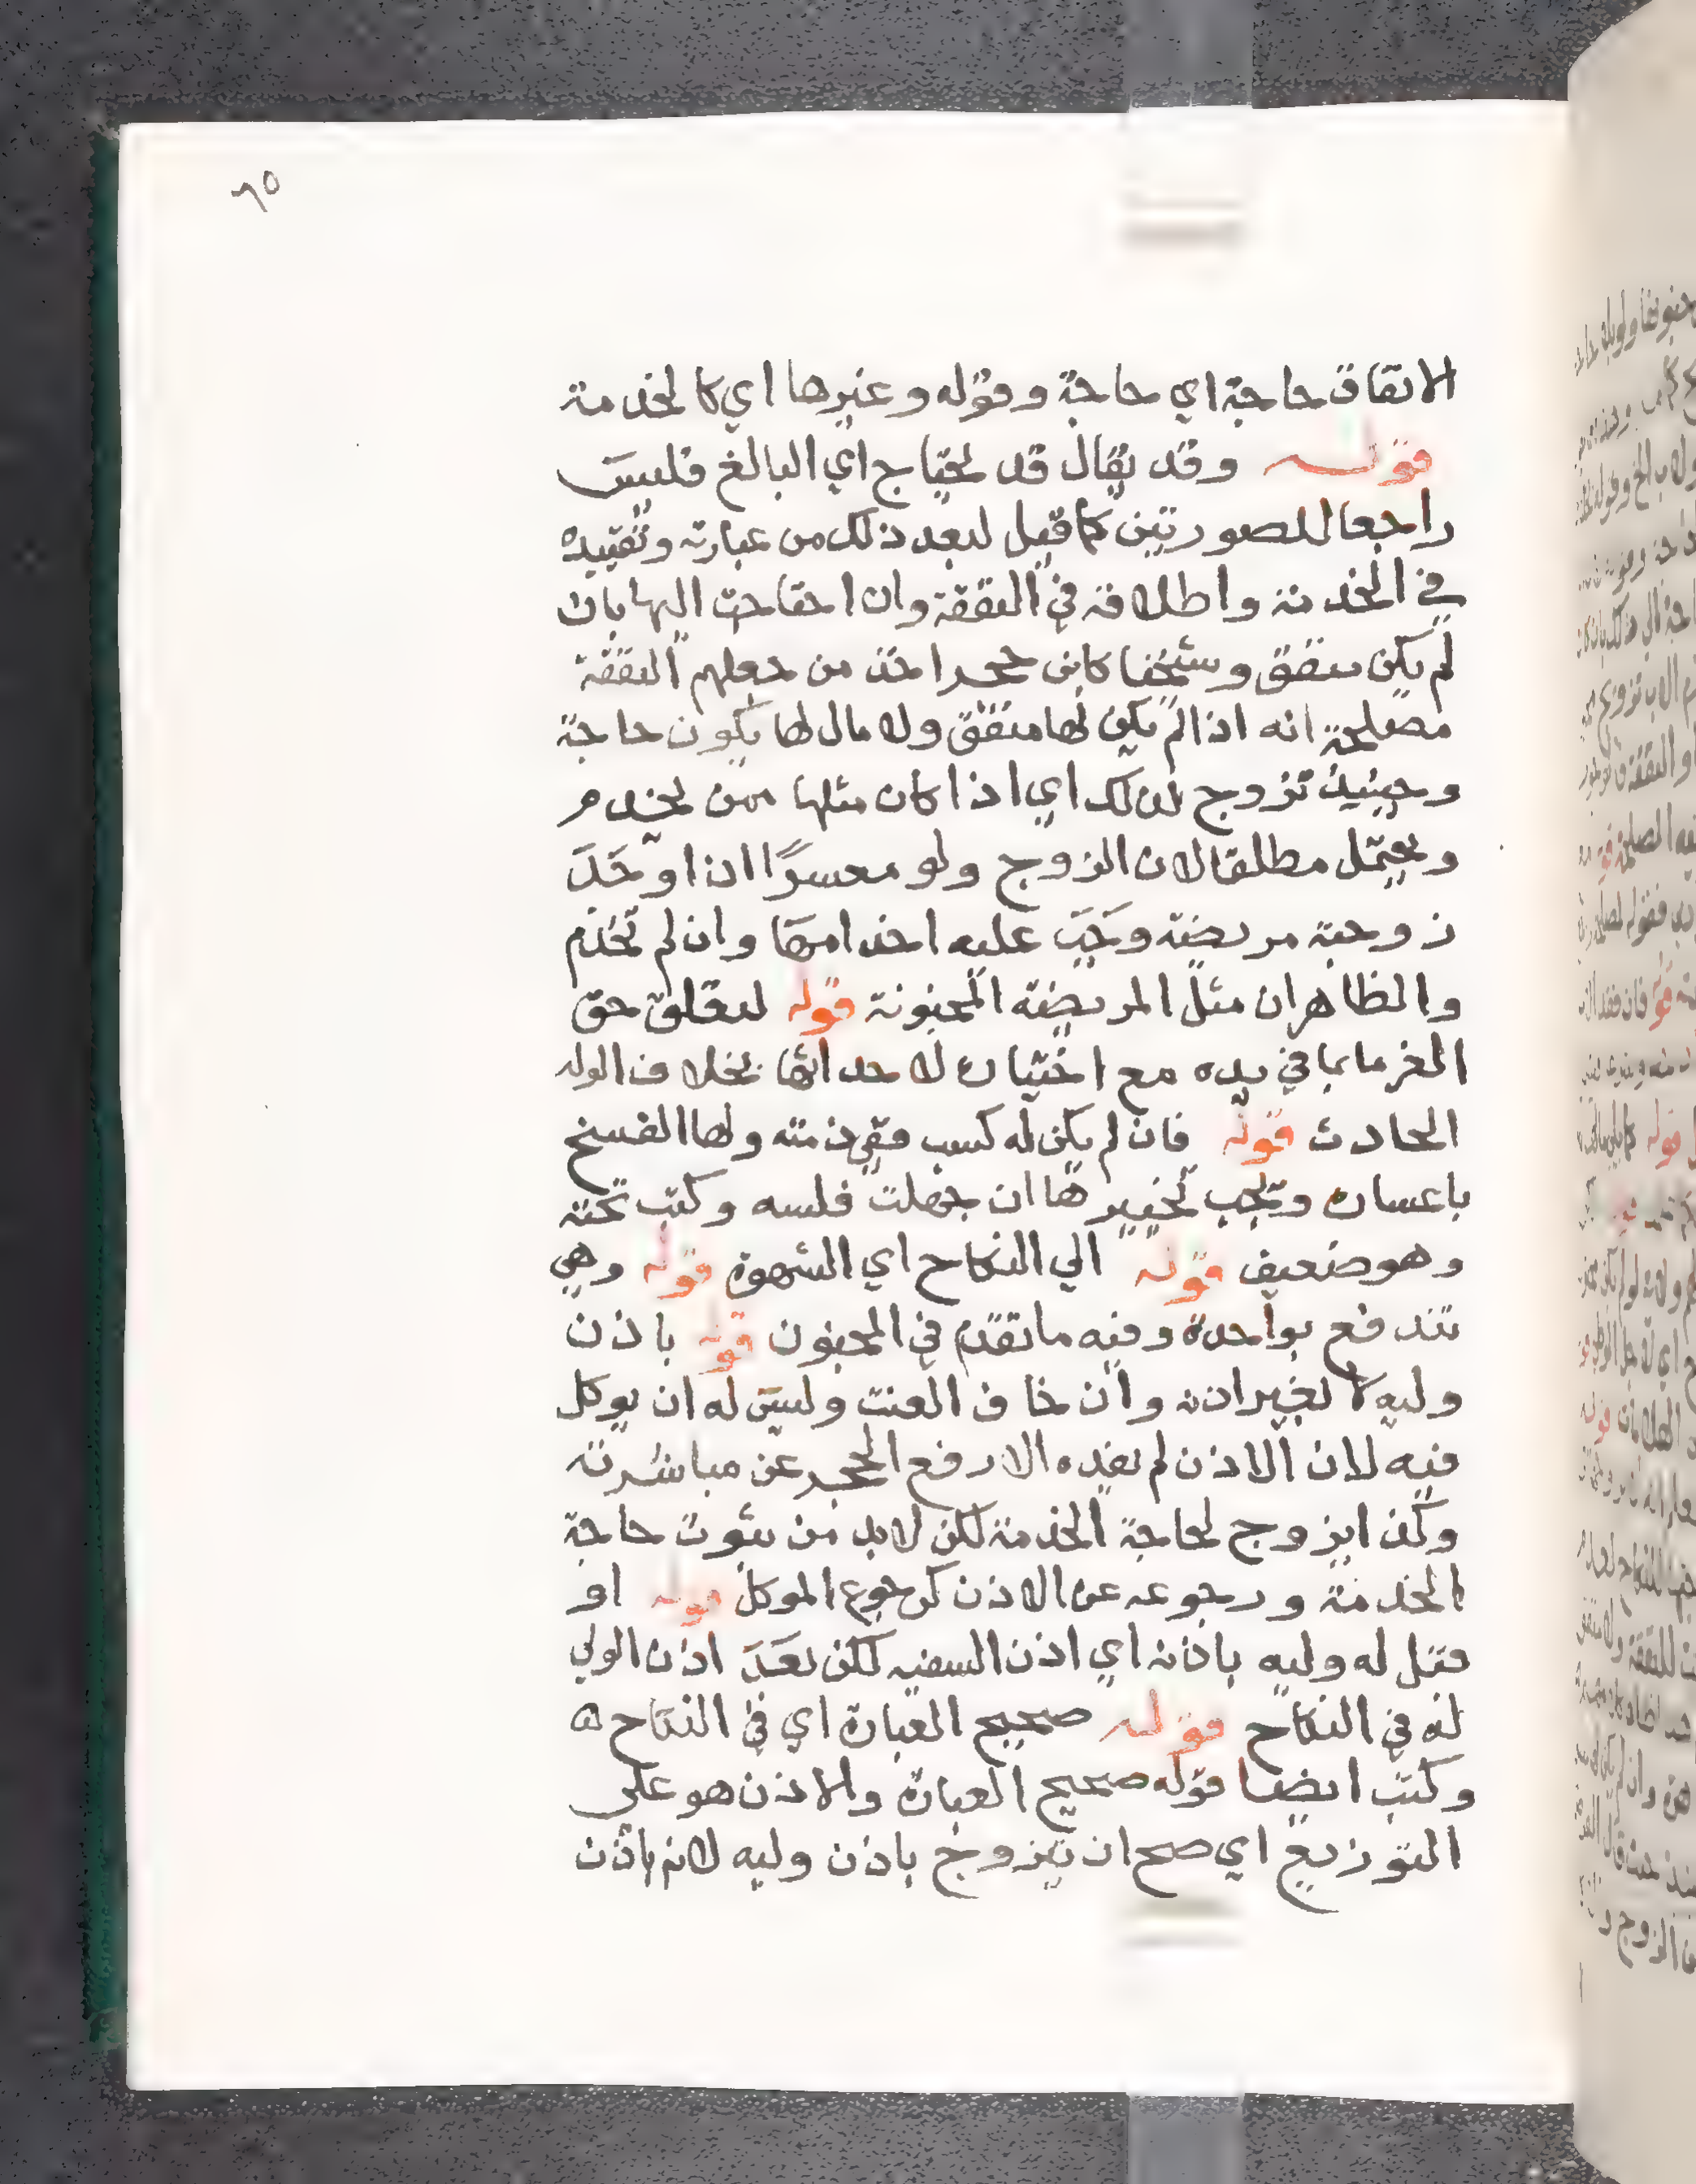 ٦٥
الانفاق حاجة اي حاجة وقوله وغيرها اي كالخدمة
قوله وقد يقال قد يحتاج اي البالغ فليس
راجعا للصورتين كما قيل لبعد ذلك من عبارته وتقييده
في الخدمة واطلاقه في النفقة وان احتاجت اليها بان
لم يكن منفق وشيخنا كابن حجر اخذ من جعلهم النفقة
مصلحة انه اذا لم يكن لها منفق ولا مال لها يكون حاجة
وحينئذ تزوج لذلك اي اذا كان مثلها ممن يخدم
ويحتمل مطلقا لان الزوج ولو معسرًا اذا وجد
زوجته مريضة وجب عليه اخدامها وان لم تخدم
والظاهر ان مثل المريضة المجنونة قوله لتعلق حق
الغرما بما في يده مع اختياره لاحداثها بخلاف الولد
الحادث قوله فان لم يكن له كسب ففي ذمته ولها الفسخ
باعساره ويجب تخييرها ان جهلت فلسه وكتب تحته
وهو ضعيف قوله الي النكاح اي الشهوة قوله وهي
تندفع بواحدة وفيه ما تقدم في المجنون قوله باذن
وليه لا بغير اذنه وان خاف العنت وليس له ان يوكل
فيه لان الاذن لم يفده الا رفع الحجر عن مباشرته
وكذا يزوج لحاجة الخدمة لكن لا بد من ثبوت حاجة
الخدمة ورجوعه عن الاذن كرجوع الموكل قوله او
قبل له وليه باذنه اي اذن السفيه لكن بعد اذن الولي
له في النكاح قوله صحيح العبارة اي في النكاح ه
وكتب ايضا قوله صحيح العبارة والاذن هو علي
التوزيع اي صح ان يتزوج باذن وليه لانه باذن